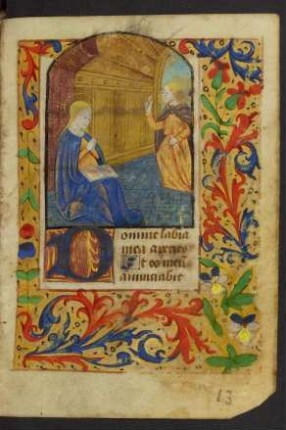 Domine labia
mea aperies
Et os meū
anunciabit
13